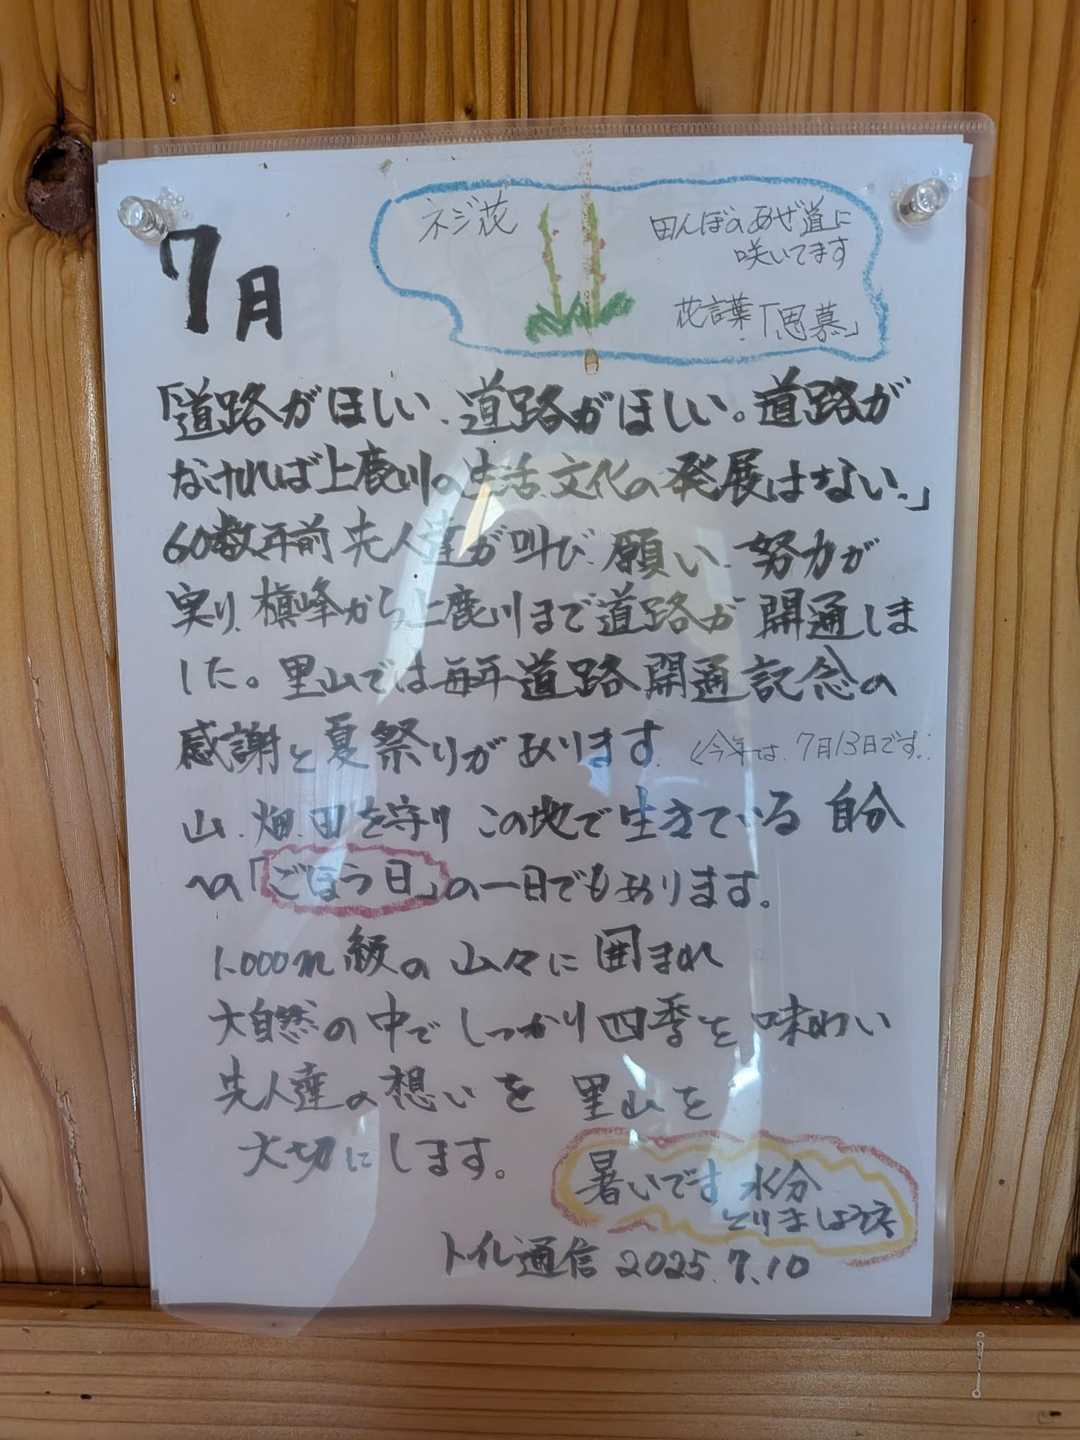 7月
ネジ花
田んぼのあぜ道に
咲いてます
花言葉「思慕」
「道路がほしい、道路がほしい。道路が
なければ上鹿川の生活、文化の発展はない。」
60数年前先人達が叫び、願い、努力が
実り、槇峰から上鹿川まで道路が開通しま
した。里山では毎年道路開通記念の
感謝と夏祭りがあります。く今年は、7月13日です。
山、畑、田を守り この地で生きている 自分
への「ごほう日」の一日でもあります。
1.000m級の山々に囲まれ
大自然の中でしっかり四季を味わい
先人達の想いを 里山を
大切にします。
暑いです 水分
とりましょうネ
トイレ通信 2025.7.10